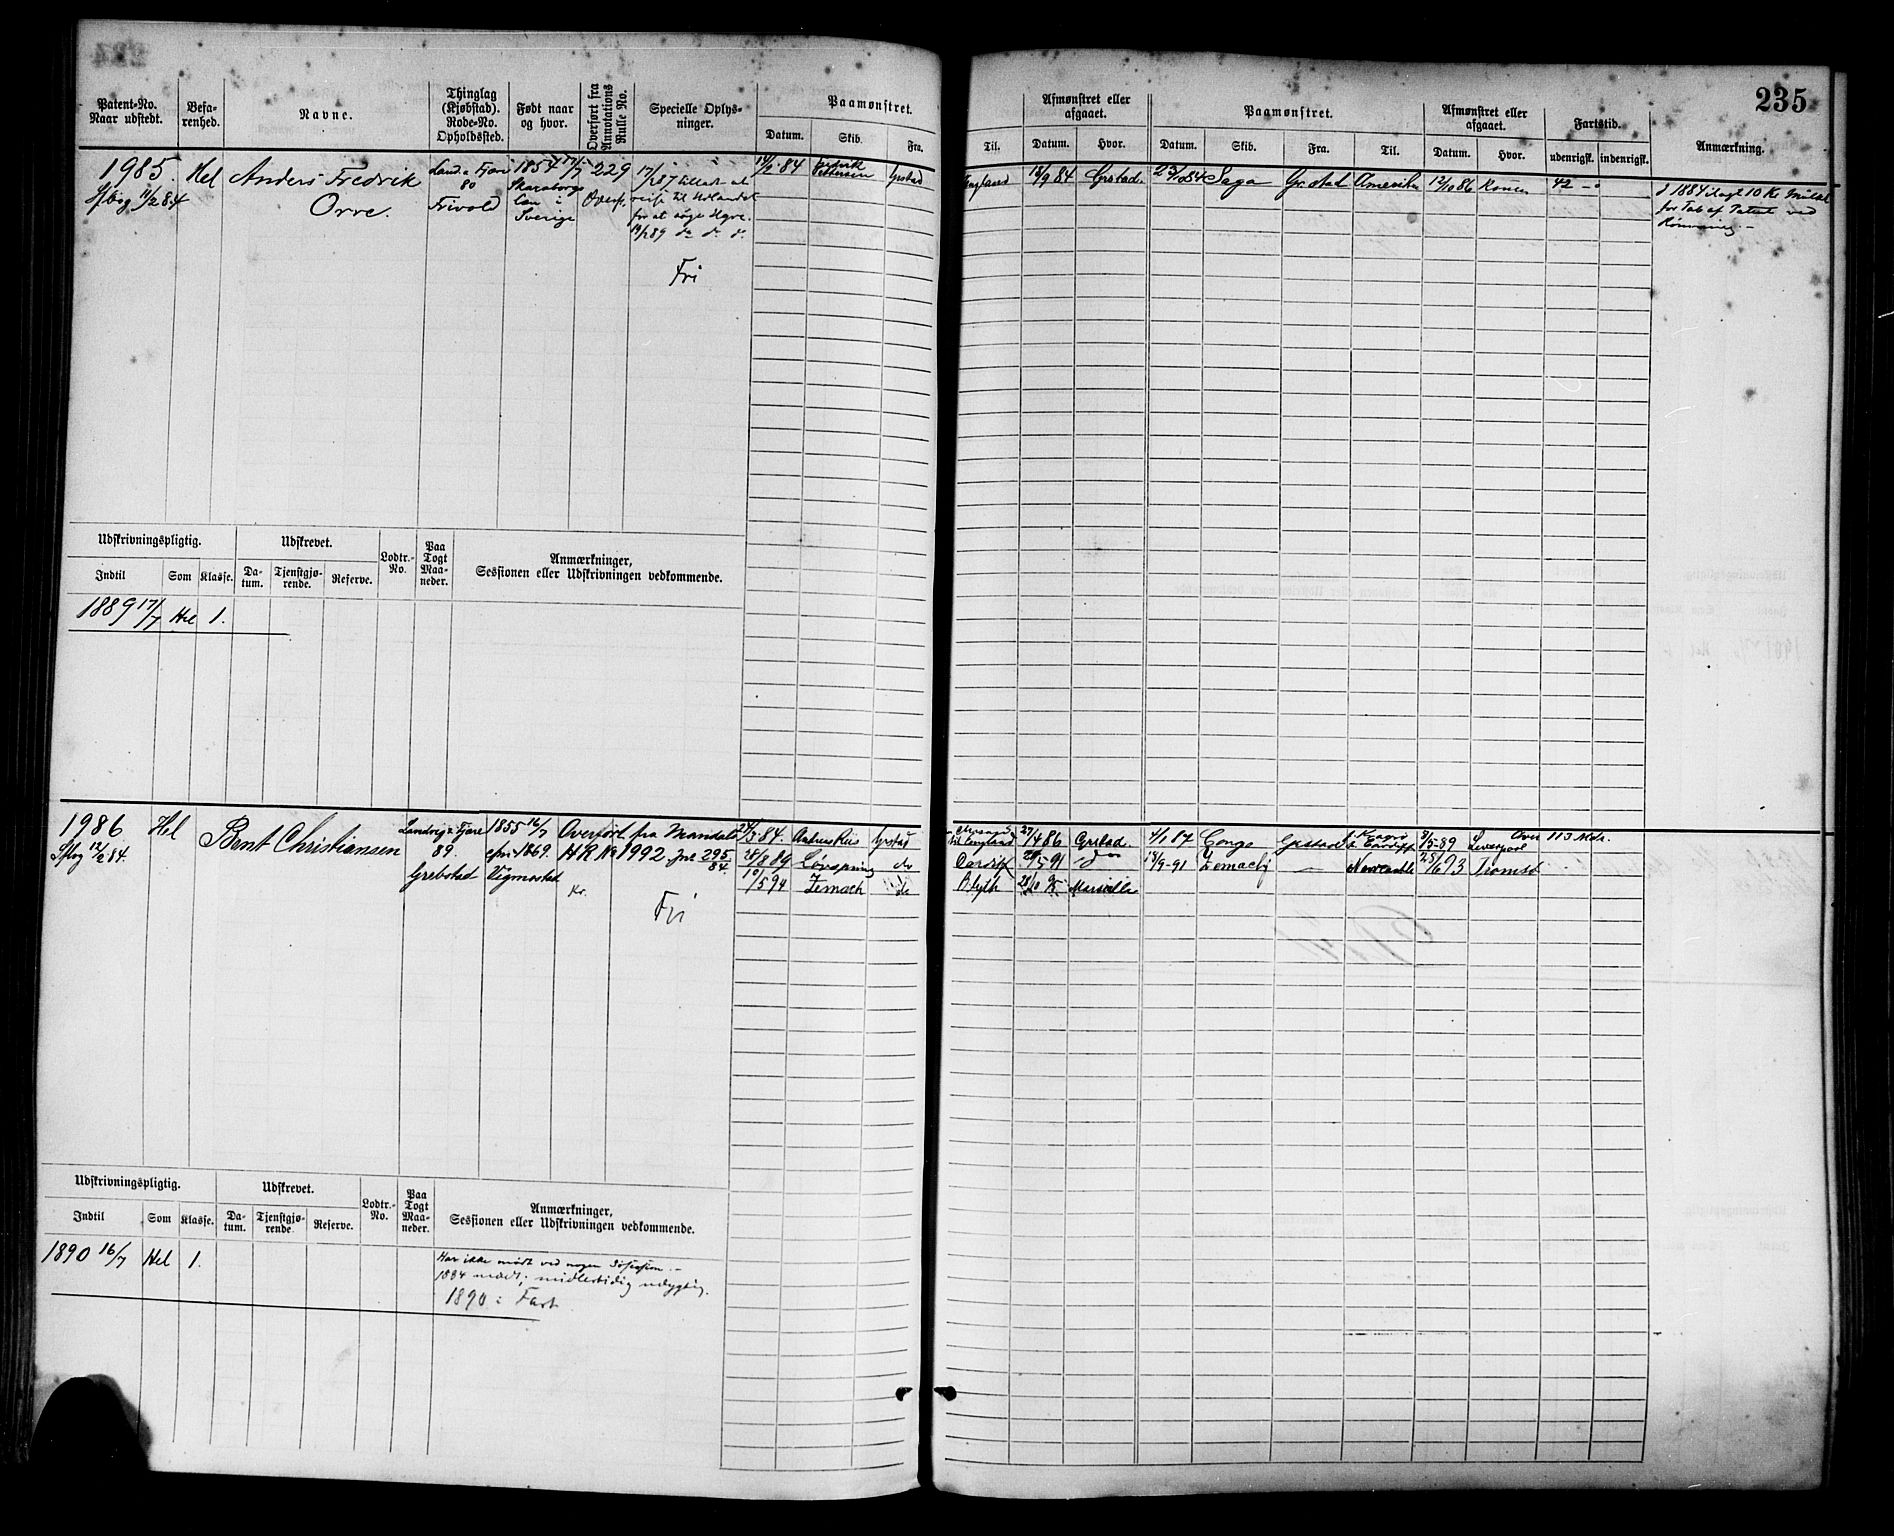 235
Patent-No. Naar udstedt.
Befarenhed.
Navne.
Thinglag (Kjøbstad). Rode-No. Opholdssted.
Født naar og hvor.
Overført fra Annotations Rulle No.
Specielle Oplysninger.
Paamønstret.
Datum. Skib. Fra.
Til.
Afmønstret eller afgaaet.
Datum. Hvor.
Paamønstret.
Datum. Skib. Fra. Til.
Afmønstret eller afgaaet.
Datum. Hvor.
Fartstid.
udenrigsk. indenrigsk.
Anmærkning.
1985.
11/2 84
Hel
Anders Fredrik
Orre.
80
Frivold
1854 17/7
Skaraborgs
Län i
Sverige
229
Overf.
17/1 87 tilladt at
reise til Udlandet
for at søge Hyre.
Fri
84
Grstad
England
84 Grstad.
23/10 84 Saga Grstad Amerika
12/10 86 Rouen
42 -
1884 ilagt 10 Kr Mulkt
for Tab af Patent ved
Rømning -
Udskrivningspligtig.
Udskrevet.
Lodtr.-No.
Paa Togt Maaneder.
Anmærkninger,
Sessionen eller Udskrivningen vedkommende.
Indtil Som Klasse. Datum. Tjenstgjørende. Reserve.
1889 17/7 Hel 1.
1986
12/2 84.
Hel
Bent Christiansen
Landvig & Fjære
89.
Grebstad
1855 16/7
1869.
Vigmostad
Overført fra Mandals
H R No 1992 Jnr 295/84
Kr.
Fri
84. Grstad
28/8 89 do
10/5 94 Zemach do
til England
27/4 86 Grstad.
4/1 87 Congo Grstad
89 Liverpool
Over 113 Mdr.
Cardiff
91 do
91 Zemach
Newcastle
93 Tromsø
Blyth
95 Marseille
Udskrivningspligtig.
Udskrevet.
Lodtr.-No.
Paa Togt Maaneder.
Anmærkninger,
Sessionen eller Udskrivningen vedkommende.
Indtil Som Klasse. Datum. Tjenstgjørende. Reserve.
1890 16/7 Hel 1.
Har ikke mødt ved nogen Session. -
1884 mødt; midlertidig udygtig.
1890 i Fart